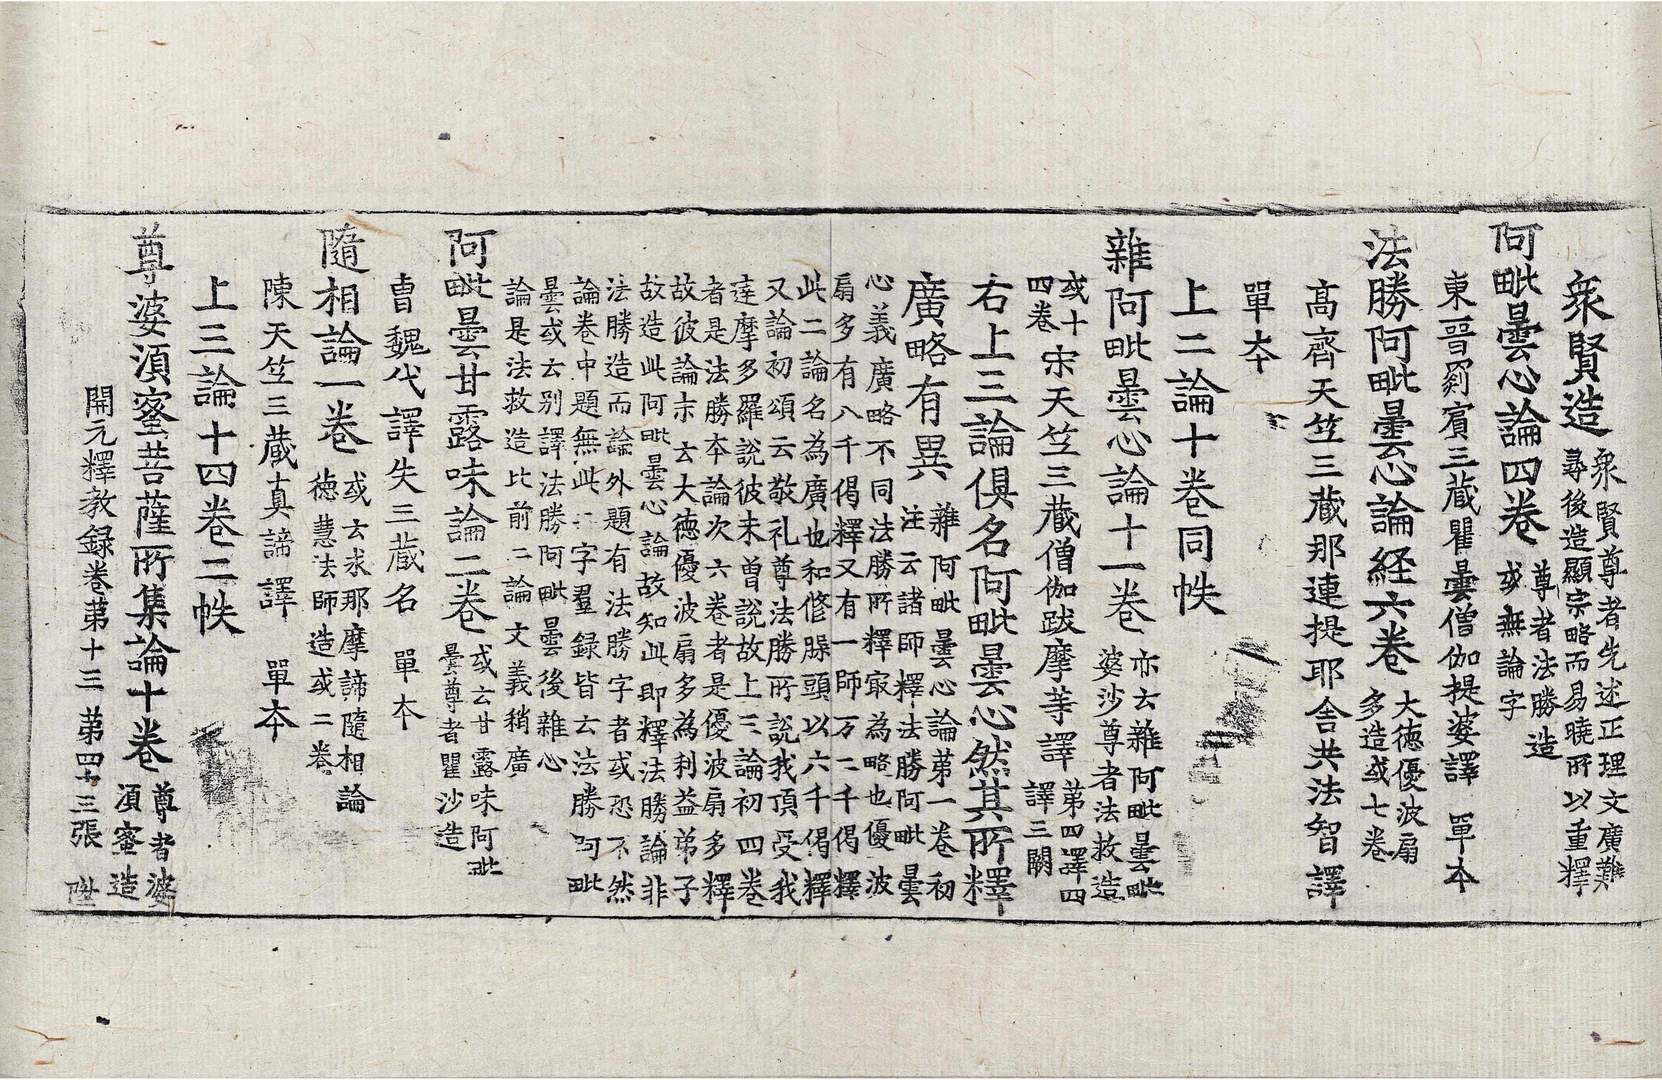 衆賢造
衆賢尊者先述正理文廣難
尋後造顯宗略而易曉所以重釋
阿毗曇心論四卷
尊者法勝造
或無論字
東晉罽賓三藏瞿曇僧伽提婆譯 單本
法勝阿毗曇心論經六卷
大德優波扇
多造或七卷
高齊天竺三藏那連提耶舍共法智譯
單本
上二論十卷同帙
雜阿毗曇心論十一卷
亦云雜阿毗曇毗
婆沙尊者法救造
或十
四卷
宋天竺三藏僧伽跋摩等譯
第四譯四
譯三闕
右上三論俱名阿毗曇心然其所釋
廣略有異
雜阿毗曇心論第一卷初
注云諸師釋法勝阿毗曇
心義廣略不同法勝所釋冣為略也優波
扇多有八千偈釋又有一師万二千偈釋
此二論名為廣也和修槃頭以六千偈釋
又論初頌云敬礼尊法勝所說我頂受我
達摩多羅說彼未曾說故上三論初四卷
者是法勝本論次六卷者是優波扇多釋
故彼論亦云大德優波扇多為利益弟子
故造此阿毗曇心論故知此即釋法勝論非
法勝造而論外題有法勝字者或恐不然
論卷中題無此二字羣録皆云法勝阿毗
曇或云别譯法勝阿毗曇後雜心
論是法救造比前二論文義稍廣
阿毗曇甘露味論二卷
或云甘露味阿毗
曇尊者瞿沙造
曹魏代譯失三藏名 單本
隨相論一卷
或云求那摩諦隨相論
德慧法師造或二卷
陳天竺三藏真諦譯 單本
上三論十四卷二帙
尊婆湏蜜菩薩所集論十卷
尊者婆
湏蜜造
開元釋教録卷第十三 第四十三張